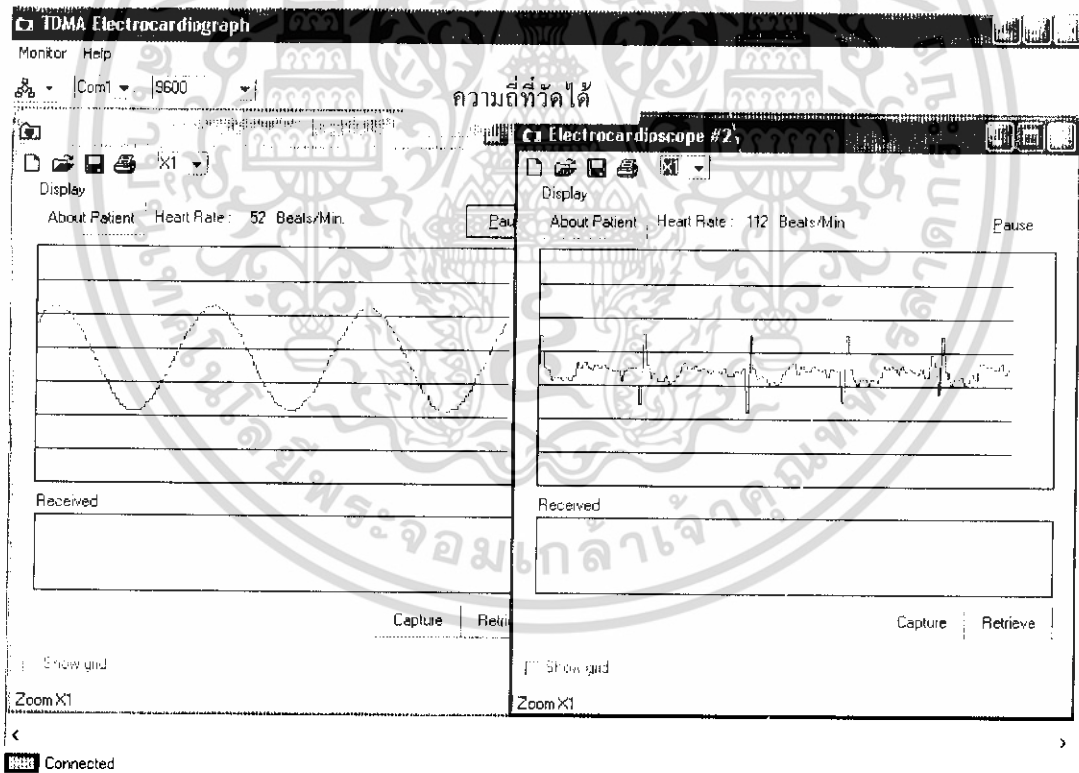 TDMA Electrocardiograph
Monitor Help
Com1 9600
ความถี่ที่วัดได้
X1
Display
About Patient Heart Rate : 52 Beats/Min. Pau
Received
Capture Retri
Show grid
Zoom X1
Electrocardioscope #2
X1
Display
About Patient Heart Rate : 112 Beats/Min Pause
Received
Capture Retrieve
Show grid
Zoom X1
Connected
พระจอมเกล้าเจ้าคุณทหาร